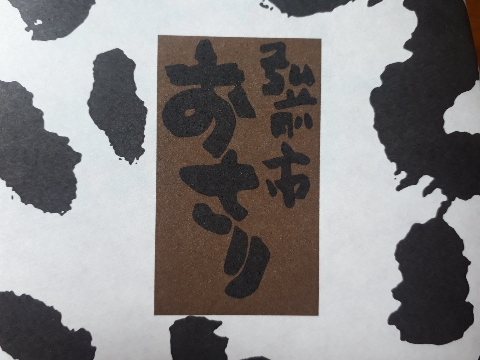 弘前市
おさり